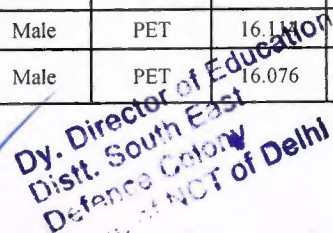 Male PET 16.111
Male PET 16.076
Dy. Director of Education
Distt. South East
Defence Colony
of NCT of Delhi